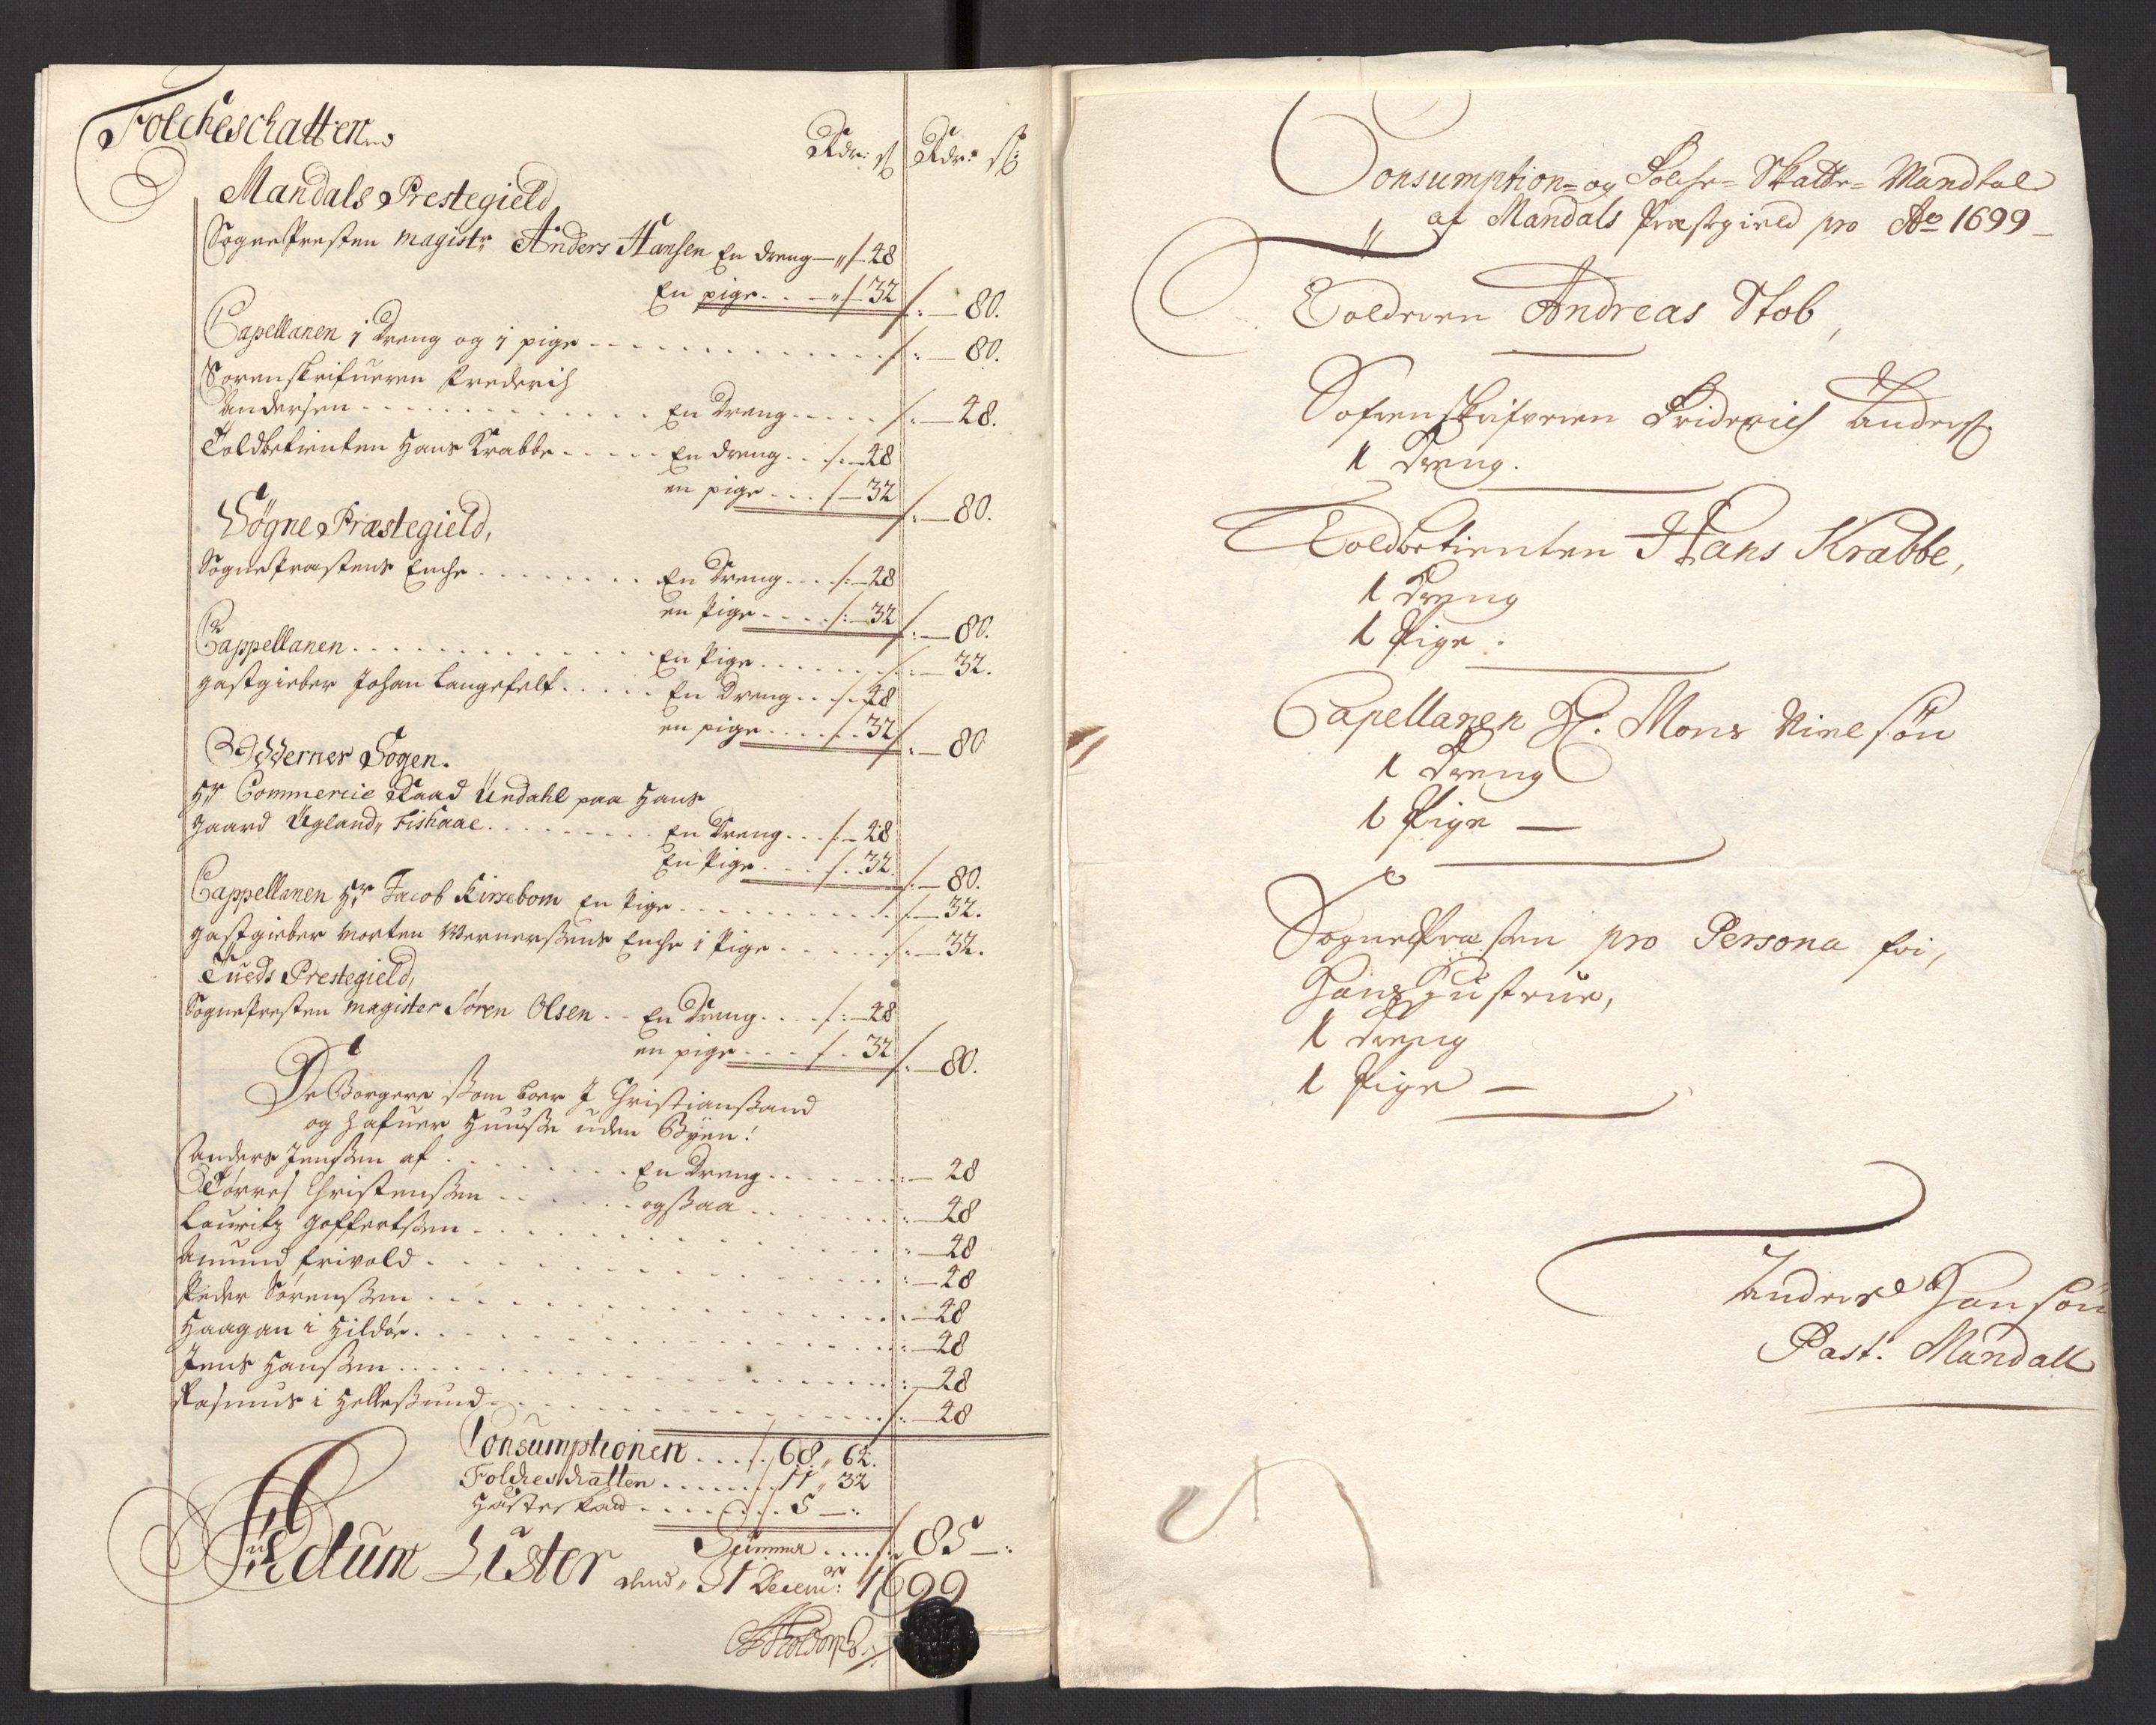 Folcheschatten
Rdr: ß Rdr: ß:
Mandals Prestegield
Sogne Presten magistr Anders Hansen En dreng — „ / 48
En pige . . — „ / 32 / : — 80.
Capellanen 1 Dreng og 1 pige . . . . / : — 80.
Sorenskrifueren Frederich
Andersen . . . . En Dreng . . . . / : — 48.
Toldbetienten Hans Krabbe . . . . En dreng . . / . — 48
en pige . . . / — 32 / : — 80.
Søgne Præstegield,
Sogne Præstens Enche . . . . En Dreng . . . / : — 48
en Pige . . . . / : — 32 / : — 80.
Cappellanen . . . . En Pige . . . . / : — 32.
gastgieber Johan Langefelt . . . . En Dreng . . / . 48
en pige . . . . / . . 32 / : — 80
Odderness Sogen.
Hr Commercie Raad Undahl paa Hans
gaard Ugland, Fiskaae . . . . En Dreng . . . / . — 48
En Pige . . . . / . . 32. / : — 80.
Cappellanen Hr Jacob Kirsebom En Pige . . . . / . — 32.
gastgieber Morten Wernerssens Enche 1 Pige . . . . / : — 32.
Tueds Prestegield,
Sogne Presten magister Søren Olsen . . En Dreng . . . . / : — 48
en pige . . . / . 32 / : — 80.
De Borgere ssom boer J Christianssand
og hafuer Huusse uden Byen!
Anders Jenssen af . . . . En Dreng . . . . : — 48
Tørres Christenssen . . . . ogssaa . . . . : — 48
Lauritz Goffertssen . . . . : — 48
Amund Frivold . . . . : — 48
Peder Sørenssen . . . . : — 48
Haagan i Hildøe . . . . : — 48
Jens Hanssen . . . . : — 48
Rasmus i Hellessund . . . . / : — 48
Consumptionen . . . / . 68 „ 62.
Folcheschatten . . . . 11 „ 32
Hosteskad . . . . / . 5 — :
Summa . . . . / „ 85 — :
Actum Lister dend „ 31 Decemr: 1699
Consumption- og Folche- Skatte- Mandtal
af Mandals Præstegield pro Ao 1699
Tolderen Andreas Stob,
Sorenskrifveren Friderich Anders:
1 Dreng.
Toldbetienten Hans Krabbe,
1 Dreng
1 Pige.
Capellanen H. Mons Nielsøn
1 Dreng
1 Pige —
Sognepræsten pro Persona fri,
Hans Hustrue,
1 Dreng
1 Pige —
Anders Hansøn
Past. Mandall